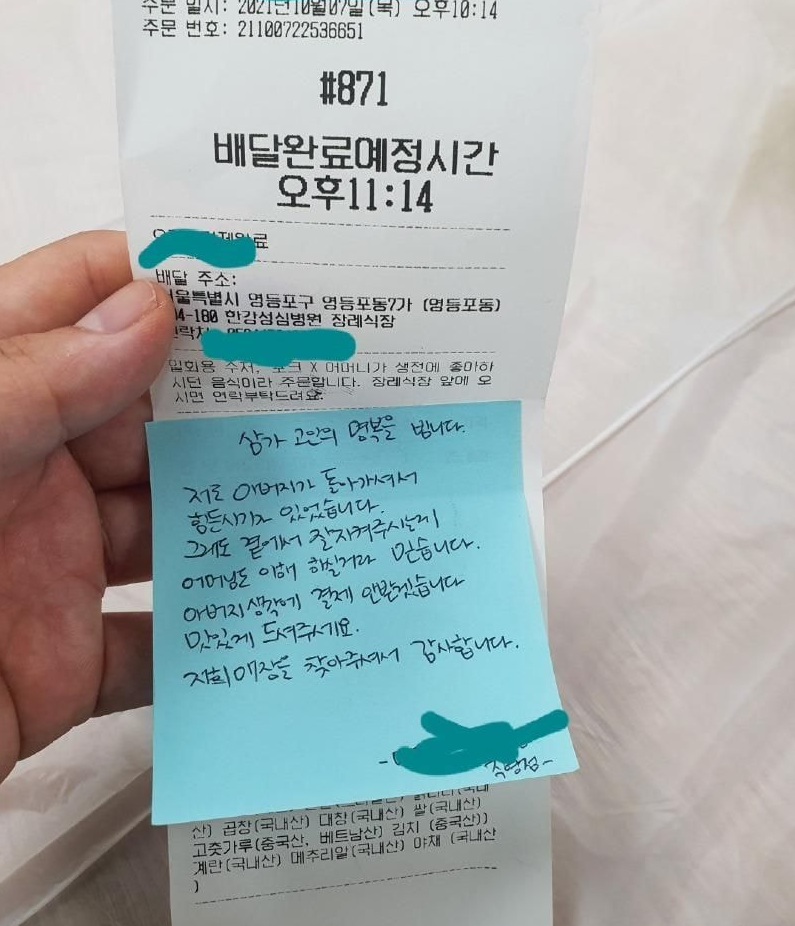 주문 일시: 2021년10월07일(목) 오후10:14
주문 번호: 21100722536651
#871
배달완료예정시간
오후11:14
배달 주소:
서울특별시 영등포구 영등포동7가 (영등포동)
94-180 한강성심병원 장례식장
연락처
일회용 수저, 포크 X 어머니가 생전에 좋아하
시던 음식이라 주문합니다. 장례식장 앞에 오
시면 연락부탁드려요.
삼가 고인의 명복을 빕니다.
저도 아버지가 돌아가셔서
힘든시기가 있었습니다.
그래도 곁에서 잘지켜주시는게
어머님도 이해 하실거라 믿습니다.
아버지 생각에 결제 안받겠습니다
맛있게 드셔주세요.
저희매장을 찾아주셔서 감사합니다.
직영점-
산) 곱창(국내산) 대창(국내산) 쌀(국내산)
고춧가루(중국산, 베트남산) 김치 (중국산))
계란(국내산) 메추리알(국내산) 야채 (국내산
)